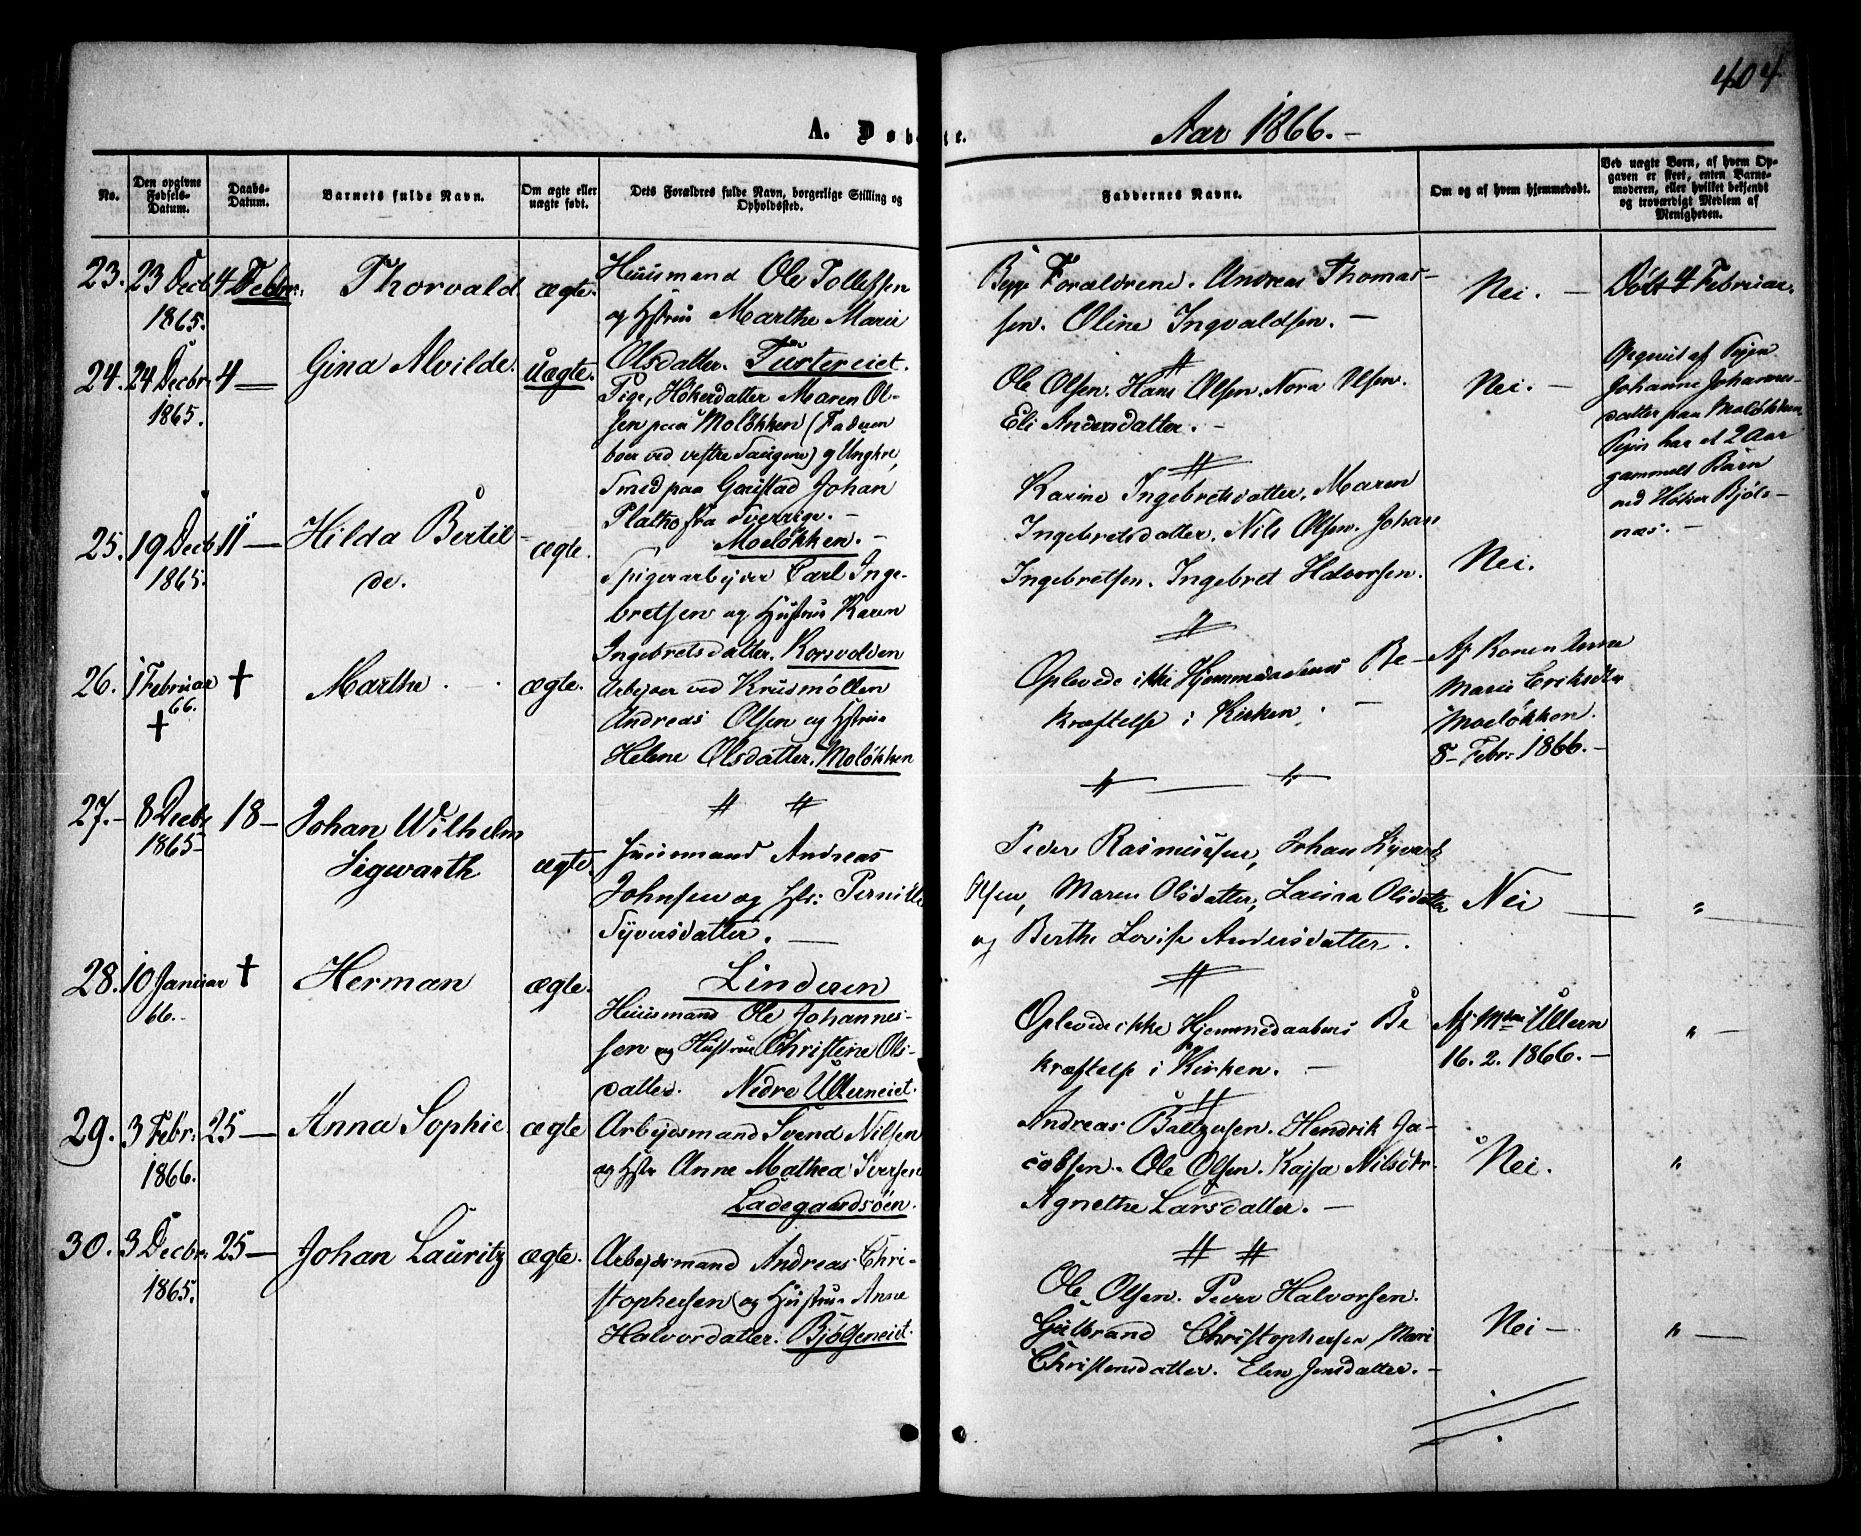 404
A. Døbte.
Aar 1866.-
No.
Den opgivne Fødsels-Datum.
Daabs-Datum.
Barnets fulde Navn.
Om ægte eller uægte født.
Dets Forældres fulde Navn, borgerlige Stilling og Opholdssted.
Faddernes Navne.
Om og af hvem hjemmedøbt.
Ved uægte Børn, af hvem Opgaven er skeet, enten Barnemoderen, eller hvilket bekjendt og troværdigt Medlem af Menigheden.
23. 23 Decb 1865. 4 Febr: Thorvald ægte.
Huusmand Ole Tollefsen
og Hstru Marthe Marie
Olsdatter. Tustereiet.
Begge Forældrene. Andreas Thomas-
sen. Oline Ingvaldsen. -
Nei. -
Døbt 4 Februar.
24. 24 Decbr. 1865. 4 - Gina Alvilde. Uægte.
Pige, Høkerdatter Maren Ol-
sen paa Moløkken (Faderen
boer ved vestre) og Ungkrl,
Smed paa Gaustad Johan
Platho fra Sverrige. -
Moeløkken. -
Ole Olsen. Hans Olsen. Nora Olsen.
Eli Andersdatter. -
Nei. -
Opgivet af Pigen
Johanne Johannes-
datter paa Moløkken
Pigen har et 2 Aar
gammelt Barn
med Høker Bjøls-
næs. -
25. 19 Decb 1865. 11 - Hilda Bertil-
de. ægte.
Spigerarbejder Carl Inge-
bretsen og Hustru Karen
Ingebretsdatter. Korsvolden
Karine Ingebretsdatter. Maren
Ingebretsdatter. Nils Olsen. Johan
Ingebretsen. Ingebret Halvorsen.
Nei.
26. 1 Februar 66. † † Marthe ægte.
Arbejder ved Krusmøllen
Andreas Olsen og Hstru
Helene Olsdatter. Moløkken
Oplevede ikke Hjemmedaabens Be-
kræftelse i Kirken. -
Af Konen Anne
Marie Eriksdtr
Moeløkken.
8- Febr: 1866. -
27.- 8 Decbr 1865- 18- Johan Wilhelm
Sigwarth ægte.
Huusmand Andreas
Johnsen og Hst: Pernille
Syversdatter. -
Linderen
Peder Rasmussen, Johan Syvert
Olsen, Maren Olsdatter, Laura Olsdatter
og Berthe Lovise Andersdatter.
Nei
"
28. 10 Januar 66.- † Herman ægte.
Huusmand Ole Johannes-
sen og Hustru Christine Ols-
datter. Nedre Ulleneiet.
Oplevede ikke Hjemmedaabens Be
kræftelse i Kirken. -
Af Mdm Ulleren
16. 2. 1866. -
" -
29. 3 Febr: 1866. 25- Anna Sophie ægte
Arbejdsmand Svend Nilsen
og Hstr Anne Mathea Iversen
Ladegaardsøen.
Andreas Baltzersen. Hendrik Ja-
cobsen. Ole Olsen. Kajsa Nilsdtr.
Agnethe Larsdatter. -
Nei.
"
30. 3 Decbr: 1865. 25- Johan Lauritz ægte.
Arbejdsmand Andreas Chri-
stophersen og Hustru Anne
Halvordatter. Bjølseneiet.
Ole Olsen. Peder Halvorsen.
Gulbrand Christophersen, Mari
Christensdatter. Elen Jensdatter. -
Nei -
" -